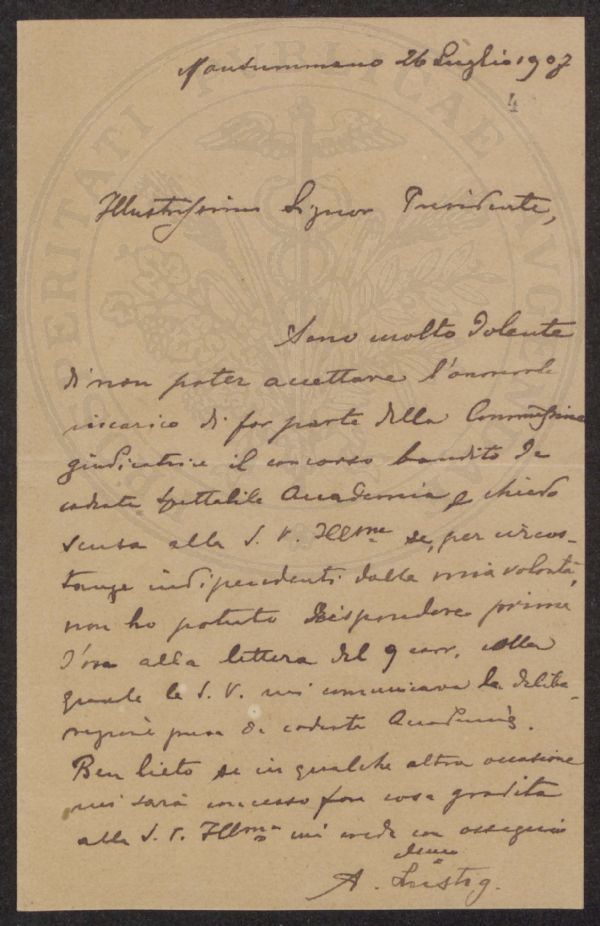 Monsummano 26 Luglio 1907
4
Illustrissimo Signor Presidente,
Sono molto dolente
di non poter accettare l'onorevole
incarico di far parte della Commissione
giudicatrice il concorso bandito da
codesta spettabile Accademia e chiedo
scusa alla S. V. Illma se, per circos-
tanze indipendenti dalla mia volontà,
non ho potuto rispondere prima
d'ora alla lettera del 9 corr. colla
quale la S. V. mi comunicava la delibe-
razione presa da codesta Accademia.
Ben lieto se in qualche altra occasione
mi sarà concesso fare cosa gradita
alla S. V. Illma mi creda con ossequio
A. Lustig.